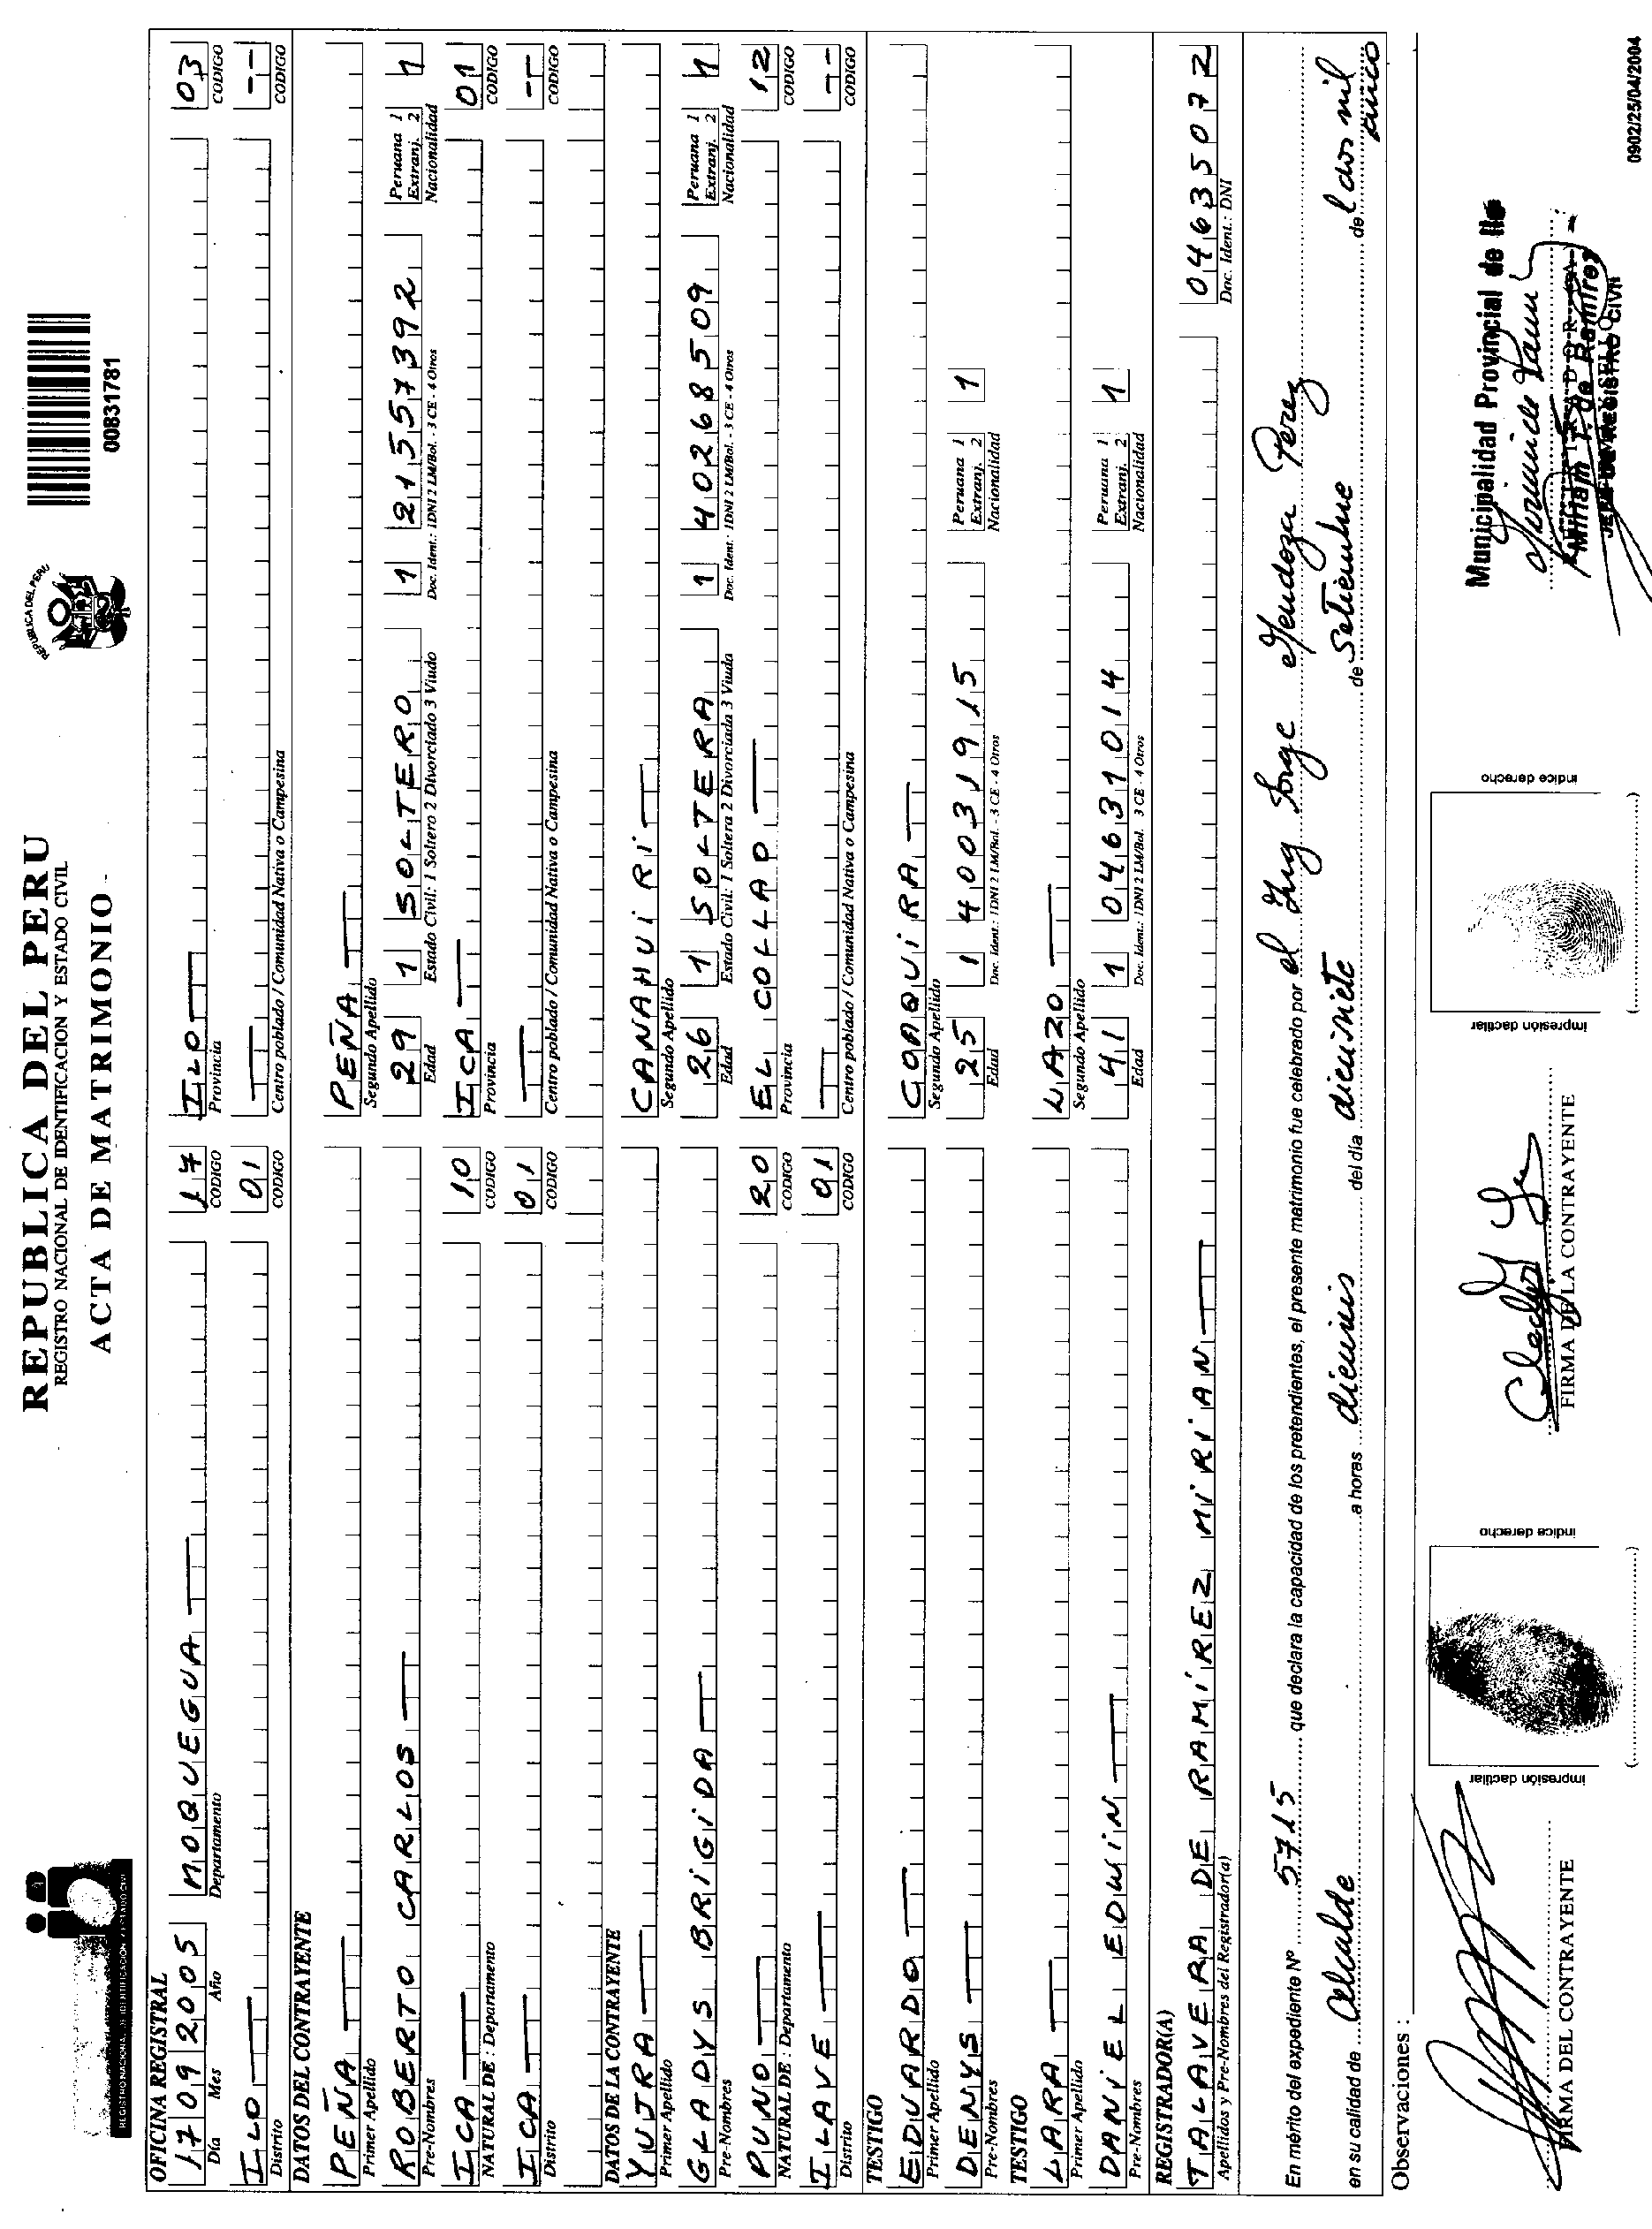 REPUBLICA DEL PERU
REGISTRO NACIONAL DE IDENTIFICACION Y ESTADO CIVIL
ACTA DE MATRIMONIO
REPUBLICA DEL PERU
00831781
REGISTRO NACIONAL DE IDENTIFICACION Y ESTADO CIVIL
OFICINA REGISTRAL
17 09 2005 MOQUEGUA 17 ILO 03
Día Mes Año Departamento CODIGO Provincia CODIGO
ILO 01 --
Distrito CODIGO Centro poblado / Comunidad Nativa o Campesina CODIGO
DATOS DEL CONTRAYENTE
PEÑA PEÑA
Primer Apellido Segundo Apellido
ROBERTO CARLOS 29 1 SOLTERO 1 21557392 Peruana 1 Extranj. 2 1
Pre-Nombres Edad Estado Civil: 1 Soltero 2 Divorciado 3 Viudo Doc. Ident.: 1DNI 2 LM/Bol. - 3 CE - 4 Otros Nacionalidad
ICA 10 ICA 01
NATURAL DE : Departamento CODIGO Provincia CODIGO
ICA 01 --
Distrito CODIGO Centro poblado / Comunidad Nativa o Campesina CODIGO
DATOS DE LA CONTRAYENTE
YUJRA CANAHUIRI
Primer Apellido Segundo Apellido
GLADYS BRIGIDA 26 1 SOLTERA 1 40268509 Peruana 1 Extranj. 2 1
Pre-Nombres Edad Estado Civil: 1 Soltera 2 Divorciada 3 Viuda Doc. Ident.: 1DNI 2 LM/Bol. - 3 CE - 4 Otros Nacionalidad
PUNO 20 EL COLLAO 12
NATURAL DE : Departamento CODIGO Provincia CODIGO
ILAVE 01 --
Distrito CODIGO Centro poblado / Comunidad Nativa o Campesina CODIGO
TESTIGO
EDUARDO COAQUIRA
Primer Apellido Segundo Apellido
DENYS 25 1 40031915 Peruana 1 Extranj. 2 1
Pre-Nombres Edad Doc. Ident.: 1DNI 2 LM/Bol. - 3 CE - 4 Otros Nacionalidad
TESTIGO
LARA LAZO
Primer Apellido Segundo Apellido
DANIEL EDWIN 41 1 04631014 Peruana 1 Extranj. 2 1
Pre-Nombres Edad Doc. Ident.: 1DNI 2 LM/Bol. 3 CE - 4 Otros Nacionalidad
REGISTRADOR(A)
TALAVERA DE RAMIREZ MIRIAN 04635072
Apellidos y Pre-Nombres del Registrador(a) Doc. Ident.: DNI
En mérito del expediente Nº 5715 que declara la capacidad de los pretendientes, el presente matrimonio fue celebrado por el Ing Jorge Mendoza Perez
en su calidad de Alcalde a horas dieciseis del día diecisiete de Setiembre de l dos mil cinco
Observaciones :
Municipalidad Provincial de Ilo
Miriam T. de Ramirez
JEFE DE REGISTRO CIVIL
FIRMA DEL CONTRAYENTE
impresión dactilar
indice derecho
FIRMA DE LA CONTRAYENTE
impresión dactilar
indice derecho
0902/25/04/2004